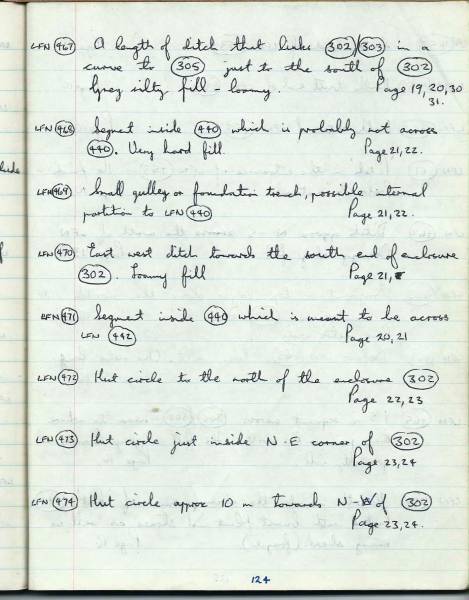 LFN (467) A length of ditch that links (302)/(303) in a
curve to (305) just to the south of (302)
Grey silty fill - loamy. Page 19, 20, 30
31.
LFN (468) Segment inside (440) which is probably not across
(440). Very hard fill. Page 21, 22.
LFN (469) Small gulley or foundation trench, possible internal
partition to LFN (440) Page 21, 22.
LFN (470) East west ditch towards the south end of enclosure
(302). Loamy fill Page 21,
LFN (471) Segment inside (440) which is meant to be across
LFN (442) Page 20, 21
LFN (472) Hut circle to the north of the enclosure (302)
Page 22, 23
LFN (473) Hut circle just inside N-E corner of (302)
Page 23, 24
LFN (474) Hut circle approx 10 m towards N-W of (302)
Page 23, 24.
124